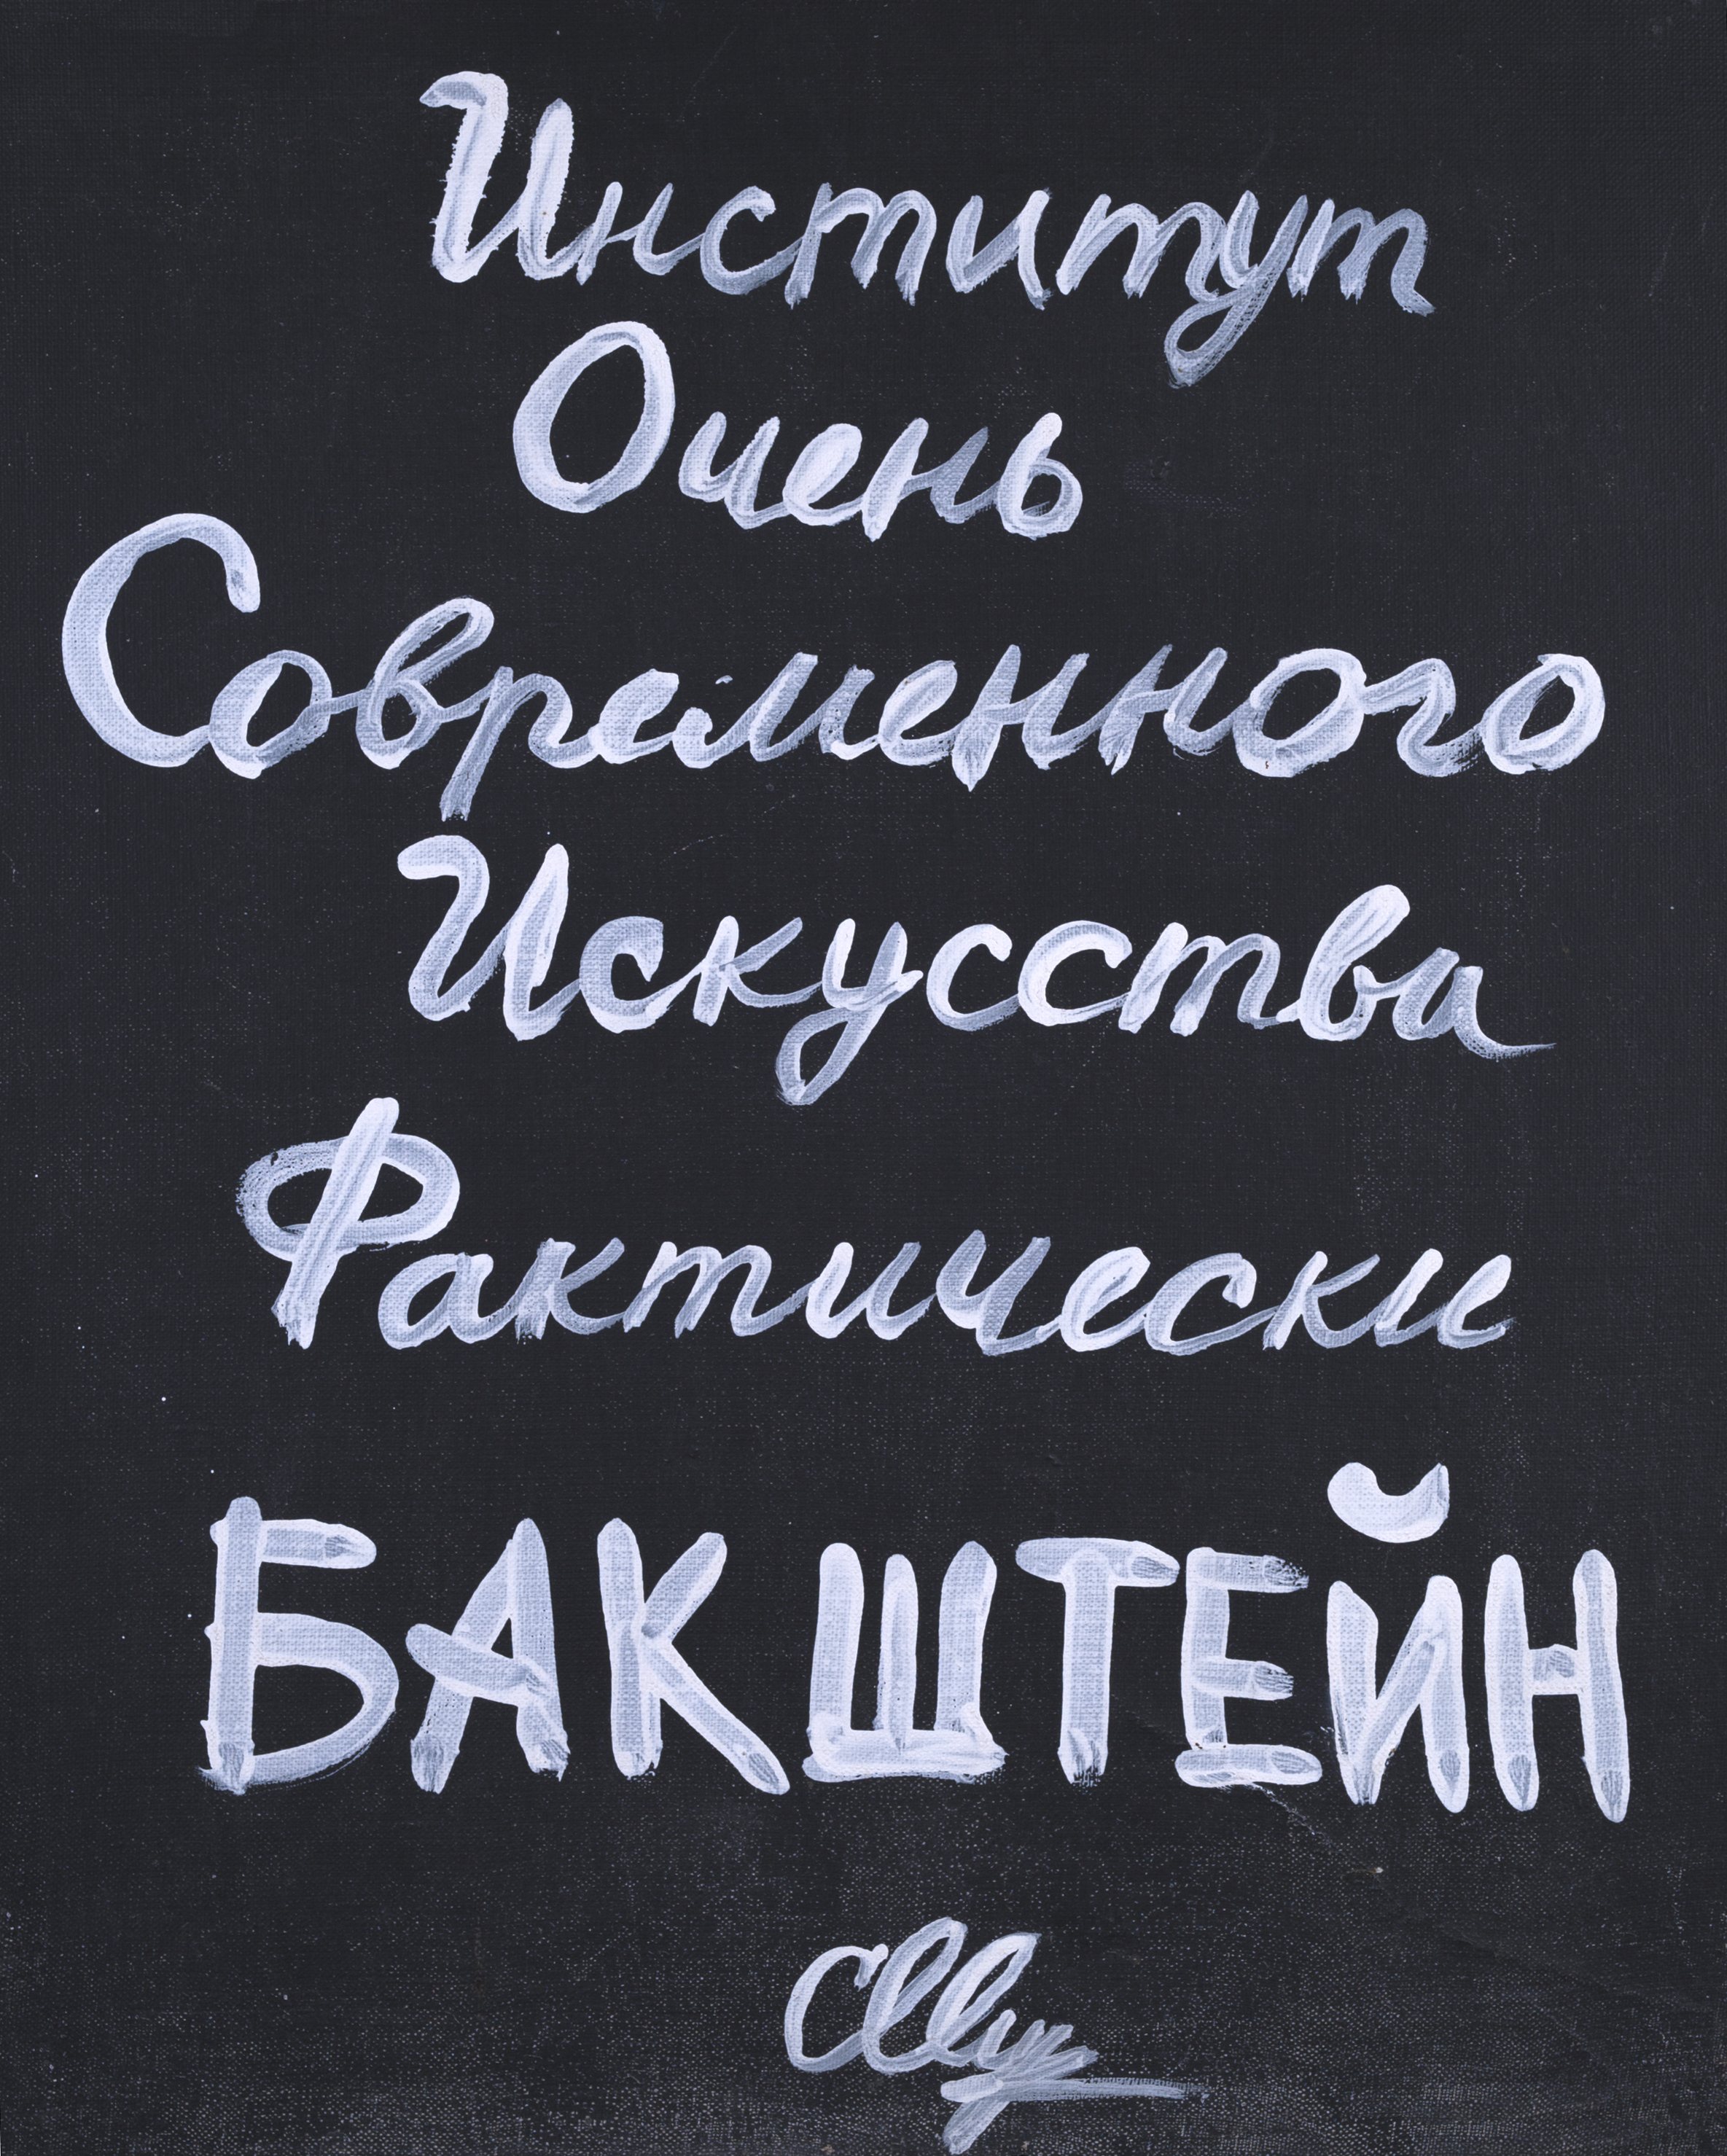 Институт
Очень
Современного
Искусства
Фактически
БАКШТЕЙН